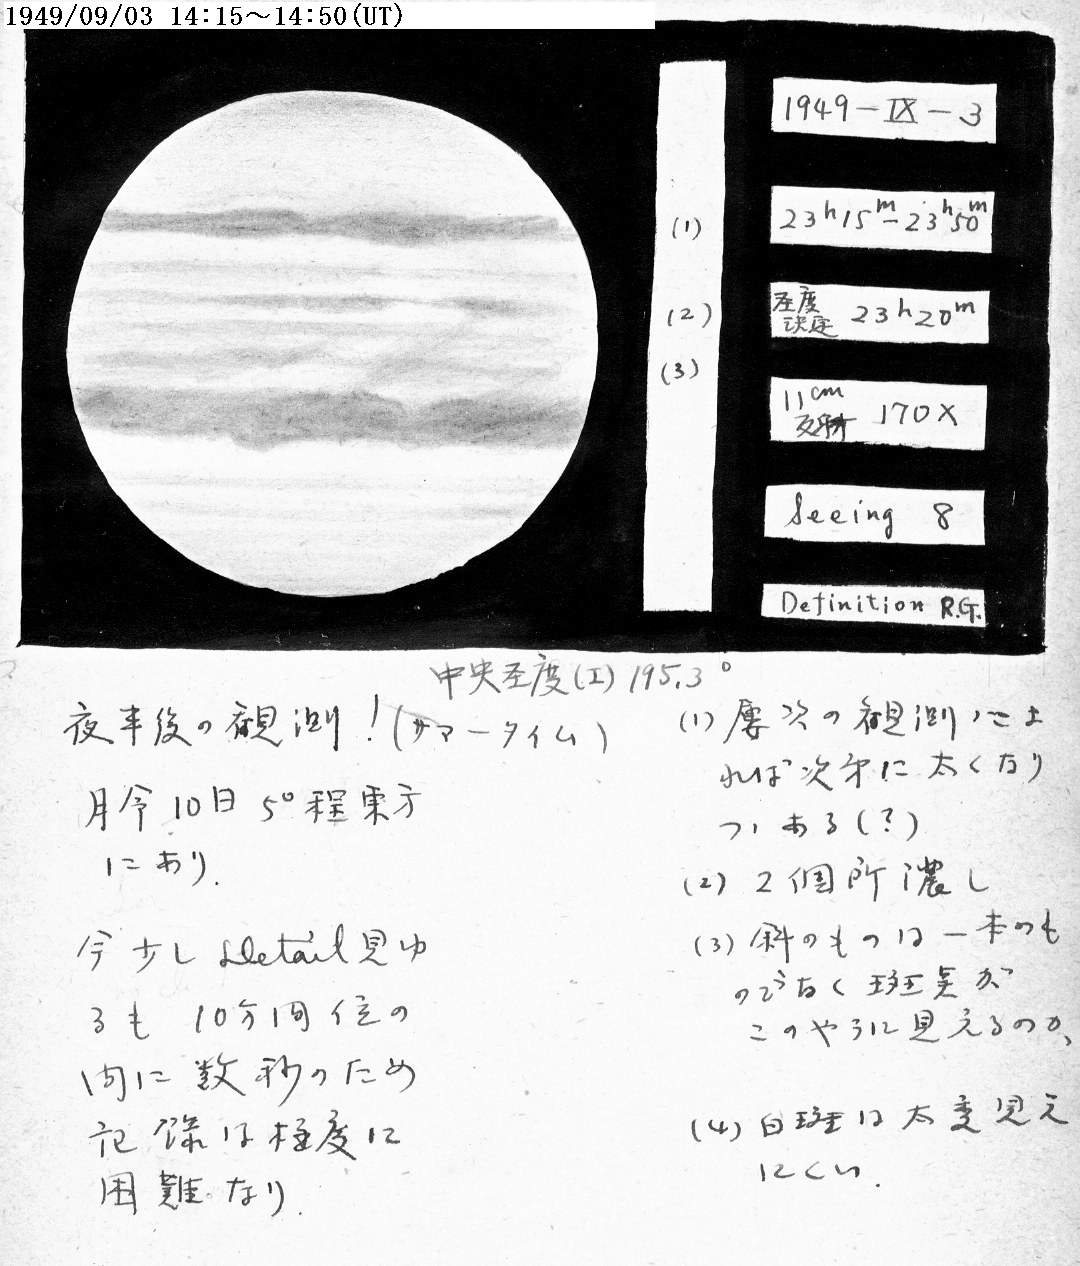 1949/09/03 14:15～14:50(UT)
1949-IX-3
23h15m-23h50m
圣度決定 23h20m
11cm 反射 170X
Seeing 8
Definition R.G.
(1)
(2)
(3)
中央圣度(I) 195.3°
夜半後の観測！(サマータイム)
月令10日 5°程東方
にあり.
今少し detail 見ゆ
るも 10分間位の
内に数秒のため
記録は極度に
困難なり.
(1) 屡次の観測によ
れば次第に太くなり
つゝある(？)
(2) 2個所濃し
(3) 斜のものは一本のも
のでなく斑点が
このやうに見えるのか、
(4) 白斑は大変見え
にくい.